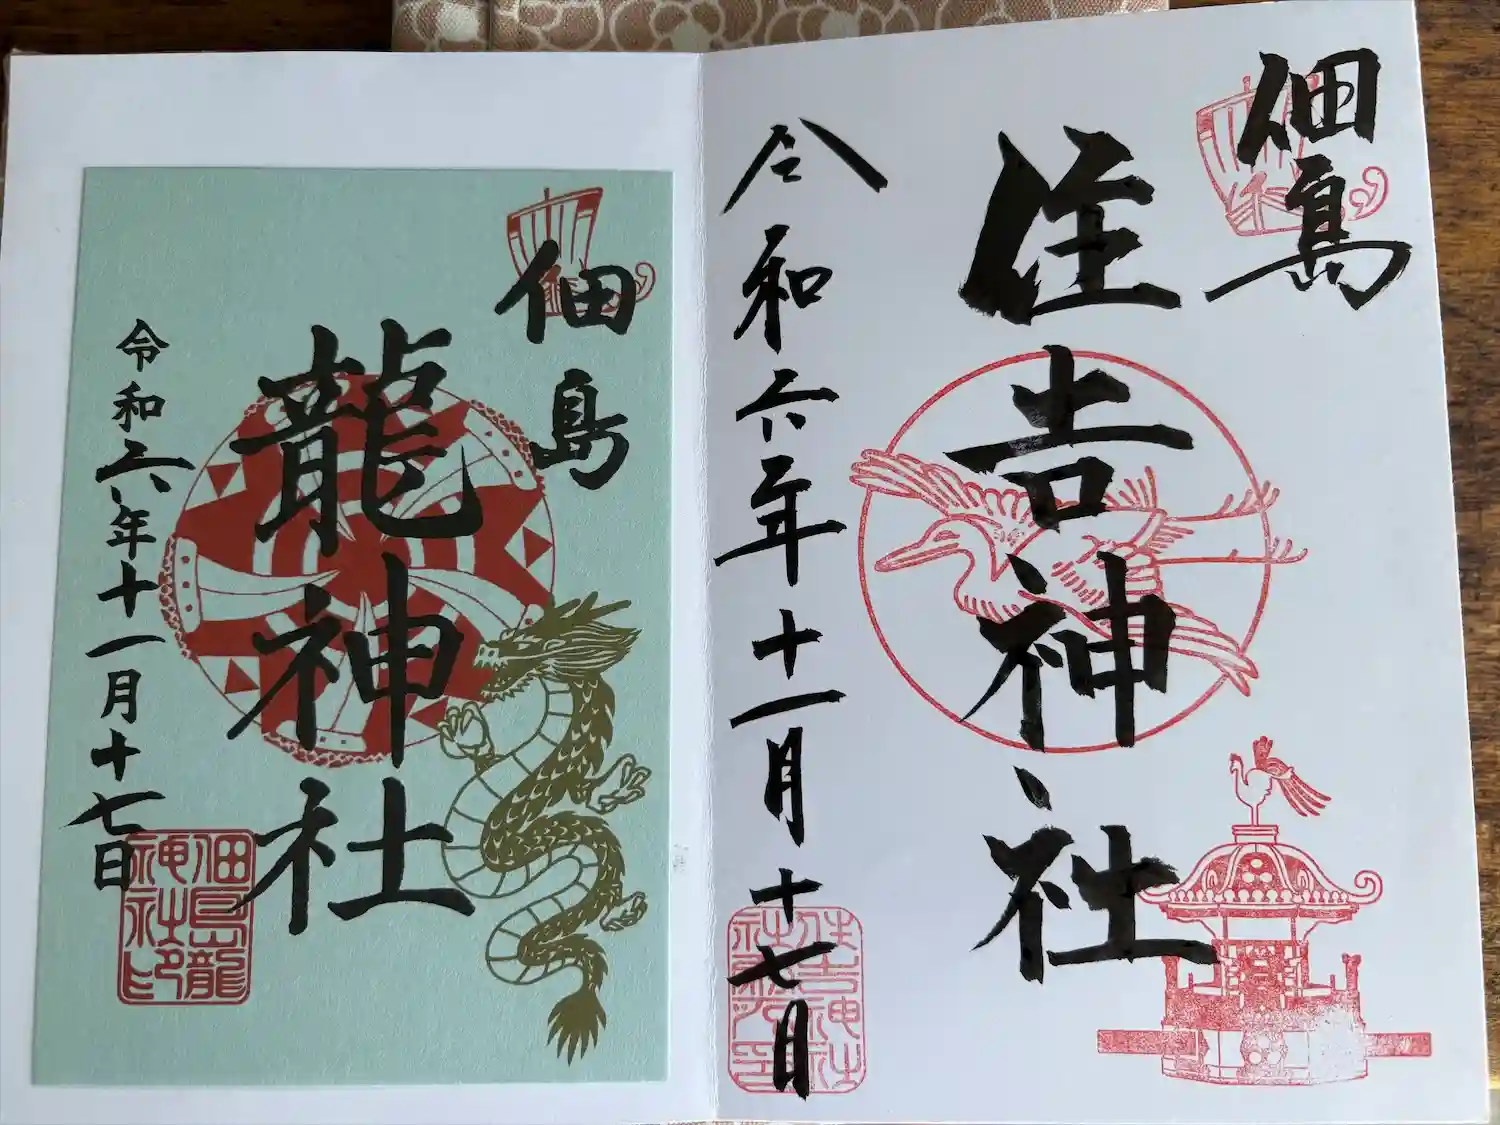 佃島
住吉神社
令和六年十一月十七日
住吉神社
社務所印
佃島
龍神社
令和六年十一月十七日
佃島龍
神社印